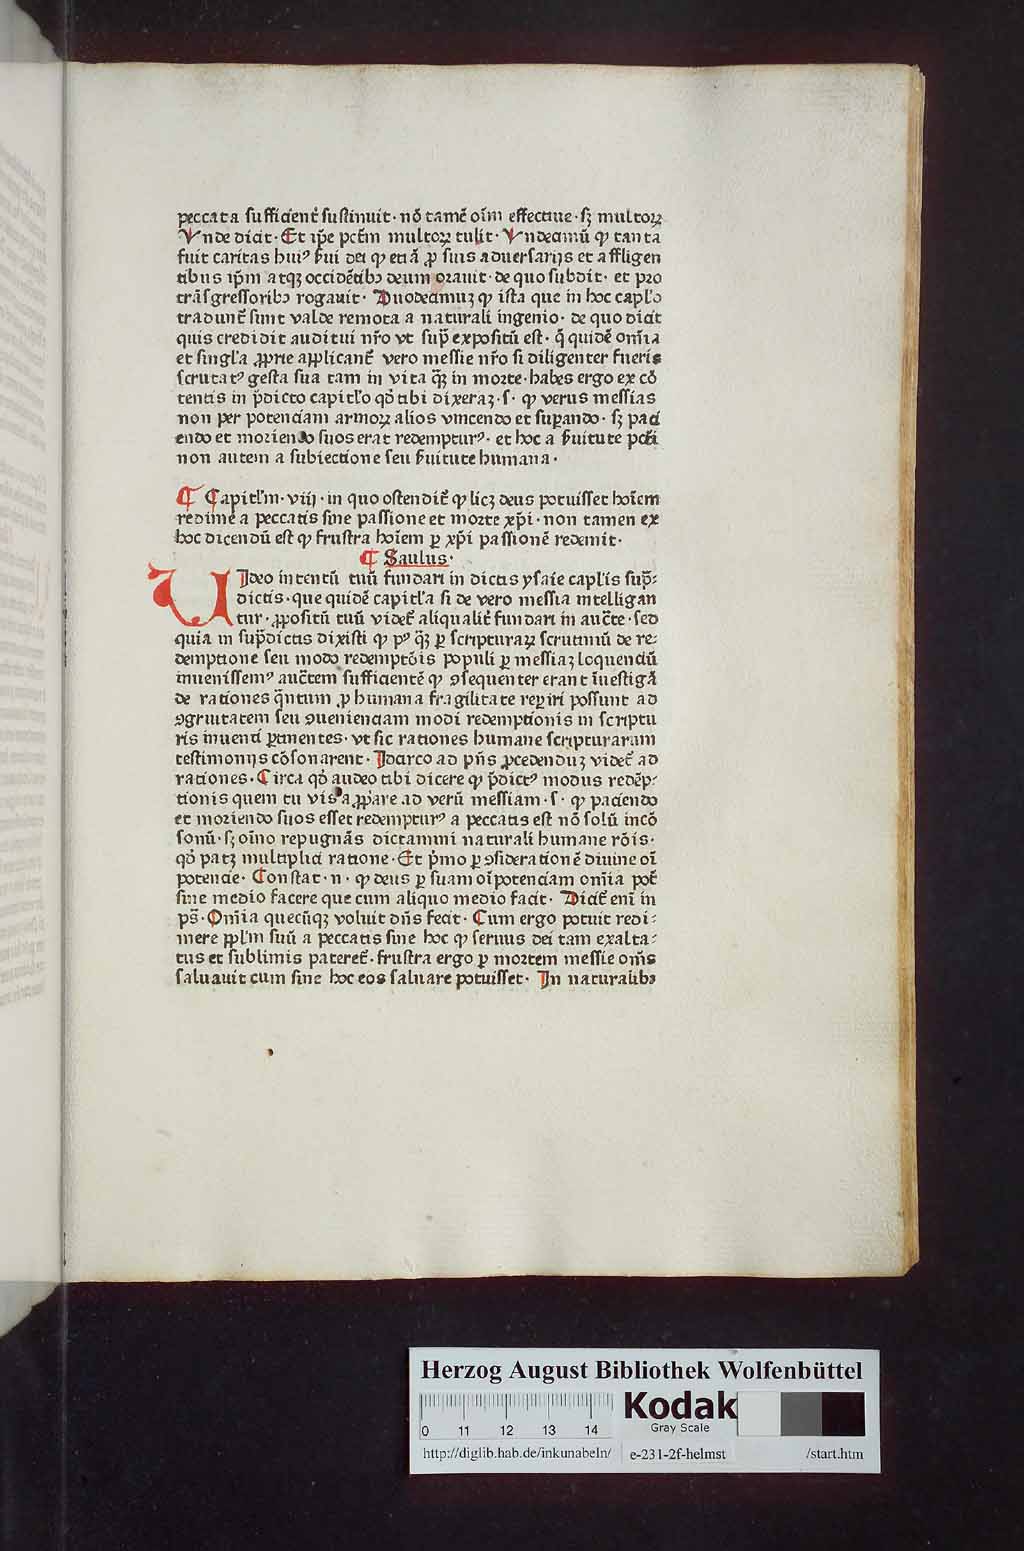 peccata sufficient᷑ sustinuit · nō tamē oīm effectiue · sꝫ multoꝝ
Vnde dicit · Et ip̄e pctm̄ multoꝝ tulit · Vndecimū ꝙ tanta
fuit caritas hui⁹ ẜui dei ꝙ etiā ꝓ suis aduersarijs et affligen
tibus ip̄m atqꝫ occidētibꝫ deum orauit · de quo subdit · et pro
trāsgressoribꝫ rogauit · Duodecimuꝫ ꝙ ista que in hoc capl̓o
tradunt᷑ sunt valde remota a naturali ingenio · de quo dicit
quis credidit auditui nr̄o vt sup̄ expositū est · q̄ quidē om̄ia
et singl̓a ꝓprie applicant᷑ vero messie nr̄o si diligenter fueris
scrutat⁹ gesta sua tam in vita qꝫ̄ in morte · habes ergo ex cō
tentis in p̄dicto capitl̓o qd̓ tibi dixeraꝫ · s · ꝙ verus messias
non per potenciam armoꝝ alios vincendo et suꝑando · sꝫ paci
endo et moriendo suos erat redemptur⁹ · et hoc a ẜuitute pctī
non autem a subiectione seu ẜuitute humana ·
¶ Capitl̓m · viij · in quo ostendit᷑ ꝙ licꝫ deus potuisset hoīem
redime᷑ a peccatis sine passione et morte xp̄i · non tamen ex
hoc dicendū est ꝙ frustra hoīem ꝑ xp̄i passionē redemit ·
¶ Saulus ·
UIdeo intentū tuū fundari in dictis ysaie capl̓is sup̄⸗
dictis · que quidē capitl̓a si de vero messia intelligan
tur · ꝓpositū tuū videt᷑ aliqualit᷑ fundari in auct᷑te · sed
quia in sup̄dictis dixisti ꝙ p⁹ qꝫ̄ ꝑ scripturaꝝ scrutiniū de re⸗
demptione seu modo redemptōis populi ꝑ messiaꝫ loquendū
inuenissem⁹ auct᷑tem sufficientē ꝙ ꝯsequenter erant īuestigā
de rationes q̄ntum ꝓ humana fragilitate reꝑiri possunt ad
ꝯgruitatem seu ꝯuenienciam modi redemptionis in scriptu
ris inuenti ꝑtinentes · vt sic rationes humane scripturarum
testimonijs cōsonarent · Idcirco ad pn̄s ꝓcedenduꝫ videt᷑ ad
rationes · Circa qd̓ audeo tibi dicere ꝙ p̄dict⁹ modus redēp⸗
tionis quem tu vis aꝓpare ad verū messiam · s · ꝙ paciendo
et moriendo suos esset redemptur⁹ a peccatis est nō solū incō
sonū · sꝫ oīno repugnās dictamini naturali humane rōis ·
qd̓ patꝫ multiplici ratione · Et p̄mo ꝑ ꝯsiderationē diuine oī
potencie · Constat · n · ꝙ deus ꝑ suam oīpotenciam om̄ia pot᷑
sine medio facere que cum aliquo medio facit · Dicit᷑ enī in
ps̄ · Om̄ia quecūqꝫ voluit dn̄s fecit · Cum ergo potuit redi⸗
mere ppl̓m suū a peccatis sine hoc ꝙ seruus dei tam exalta⸗
tus et sublimis pateret᷑ · frustra ergo ꝑ mortem messie om̄s
saluauit cum sine hoc eos saluare potuisset · In naturalibꝫ
Herzog August Bibliothek Wolfenbüttel
0 11 12 13 14
Kodak
Gray Scale
http://diglib.hab.de/inkunabeln/ e-231-2f-helmst /start.htm